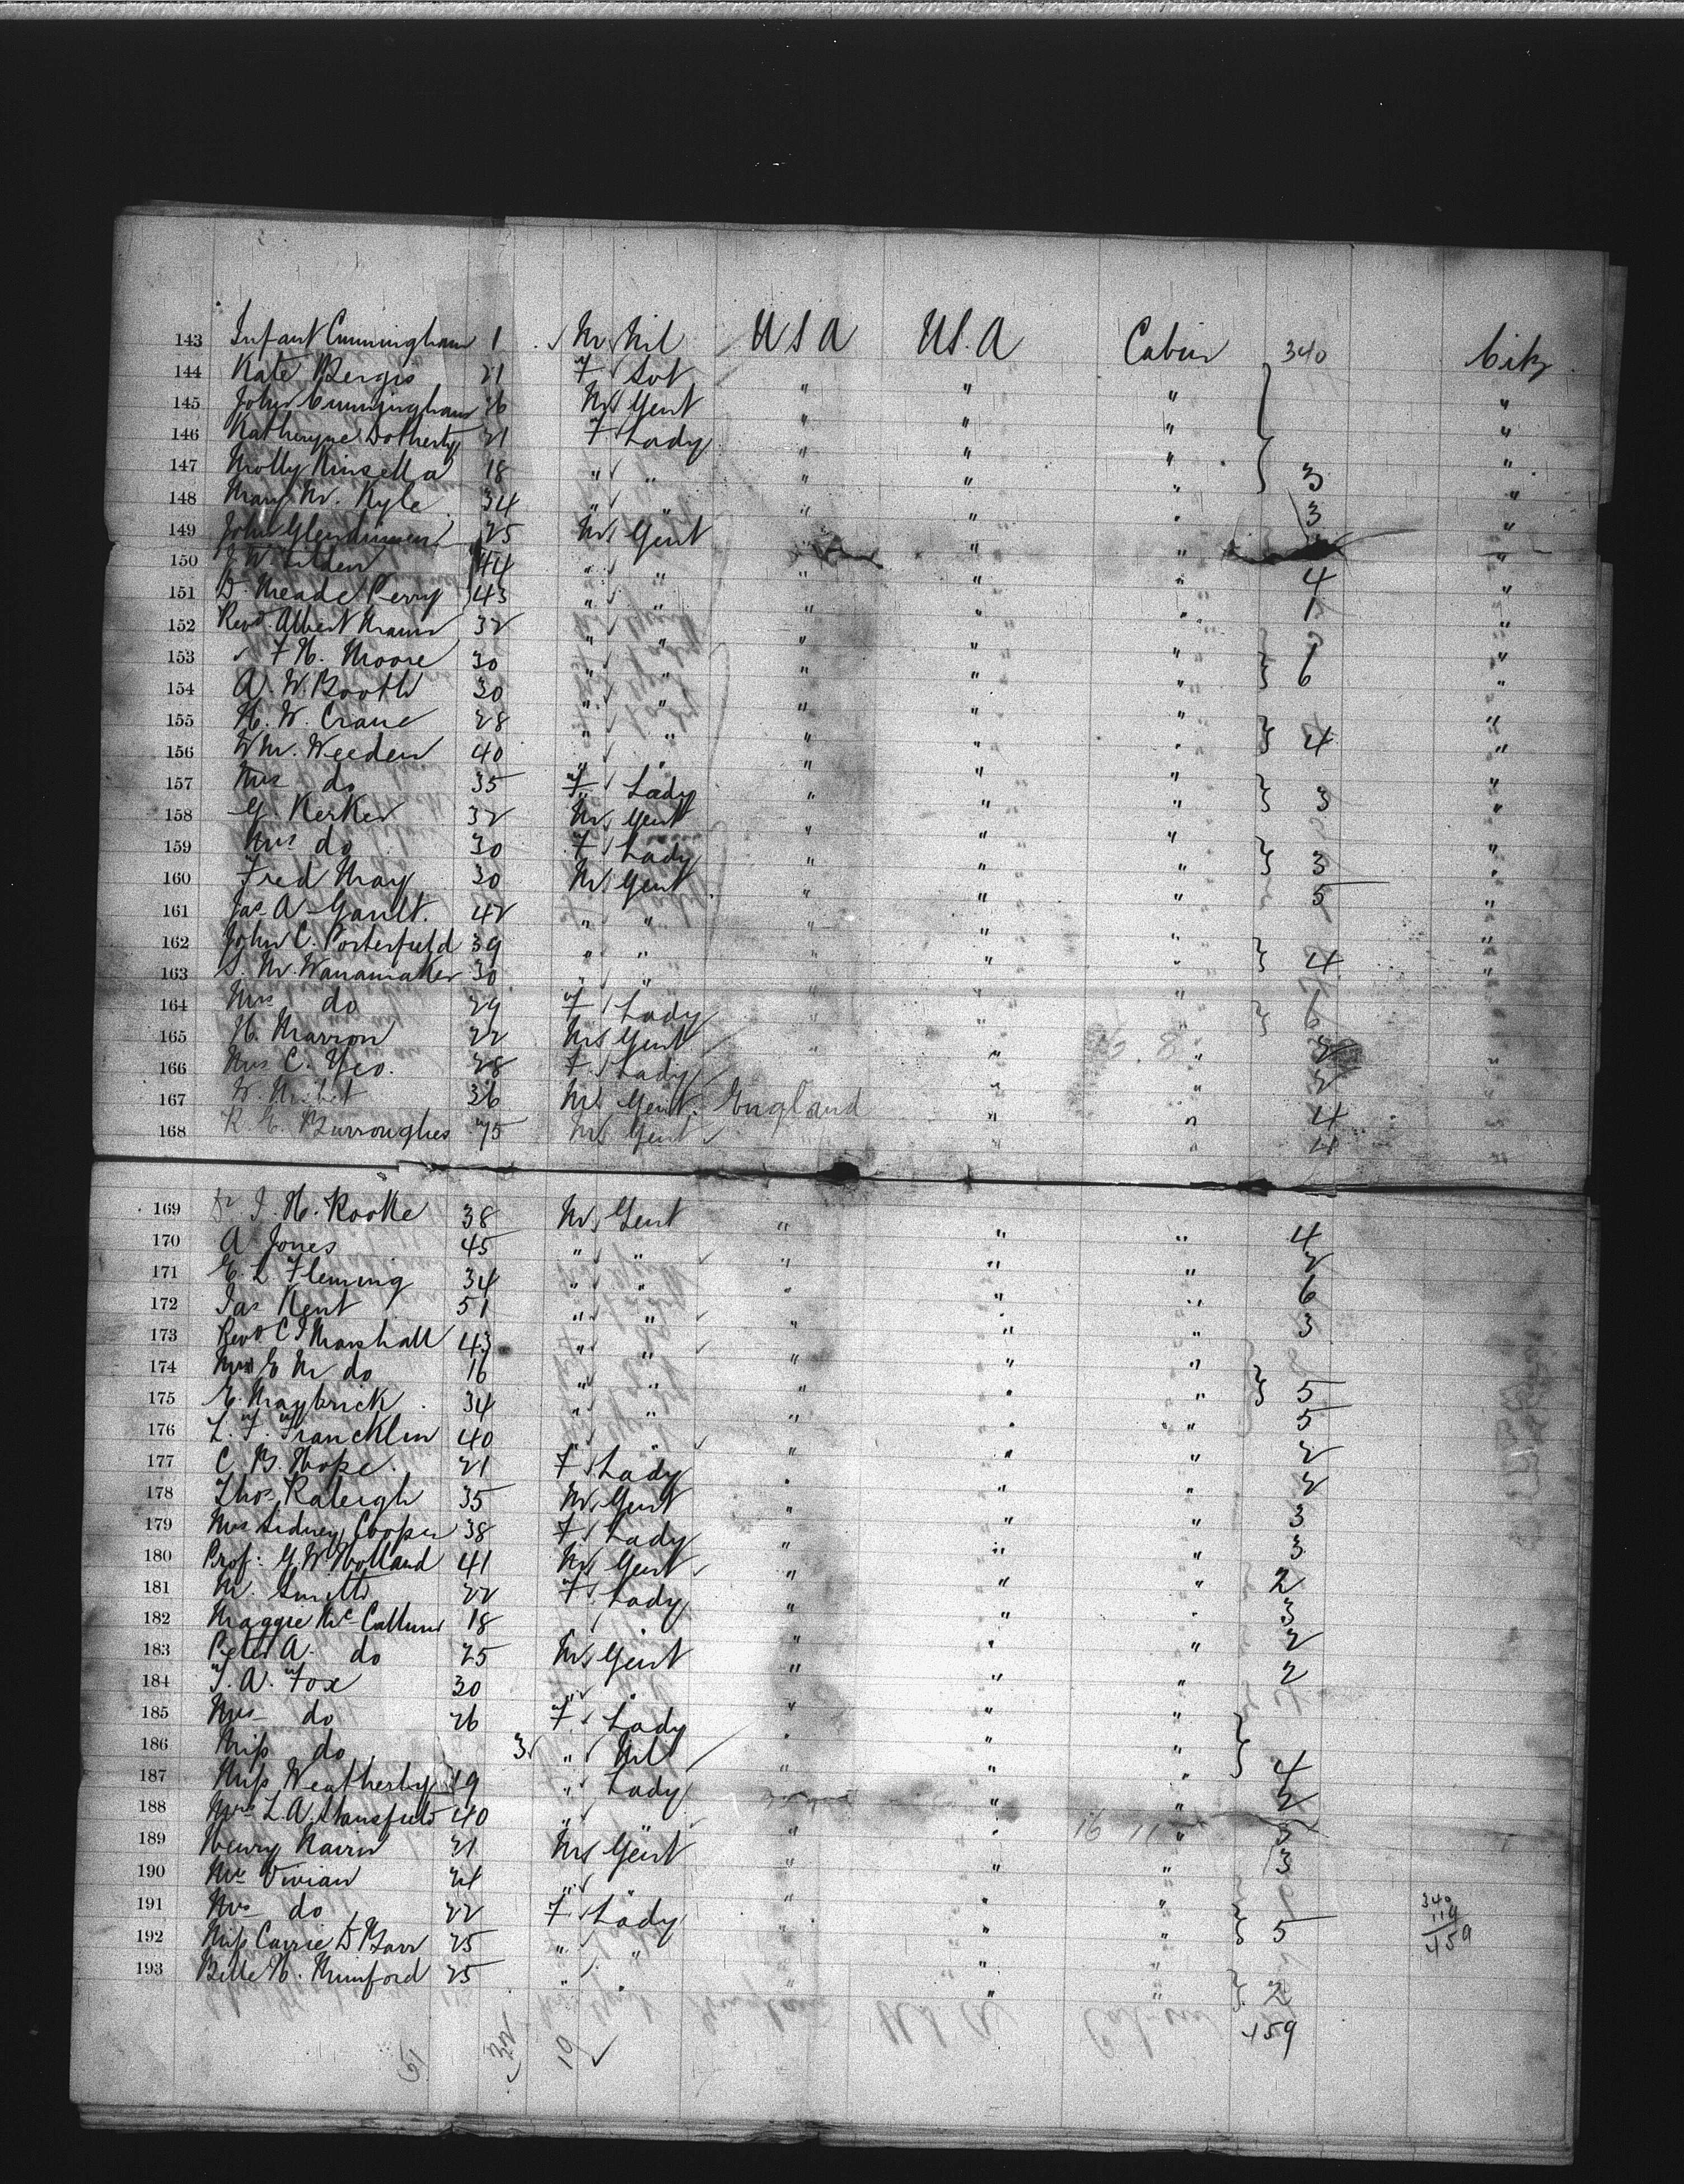 143 Infant Cunningham 1 ✓ M Nil U S A U.S.A Cabin 340 Citz
144 Kate Bergis 21 F ✓ Svt " " " "
145 John Cunningham 26 M ✓ Gent " " " "
146 Katheryne Dotherty 21 F ✓ Lady " " " "
147 Molly Kinsella 18 " ✓ " " " " 3 "
148 Mary M. Kyle 34 " ✓ " " " " 3 "
149 John Glendinnen 25 M ✓ Gent " " "
150 W. Tilden 44 " ✓ " " " " 4 "
151 D. Meade Perry 43 " ✓ " " " " 1 "
152 Revd. Albert 32 " ✓ " " " " "
153 ✓ F H. Moore 30 " ✓ " " " " 6 "
154 A. W. Booth 30 " ✓ " " " " "
155 H. W. Crane 28 " ✓ " " " " 4 "
156 Wm. Weeden 40 " ✓ " " " " "
157 Mrs do 35 F ✓ Lady " " " 3 "
158 G. Kerker 32 M ✓ Gent " " " "
159 Mrs do 30 F ✓ Lady " " " 3 "
160 Fred May 30 M ✓ Gent " " " 5 "
161 Jas A Gault. 42 " ✓ " " " " "
162 John C. Porterfield 39 " ✓ " " " " 4 "
163 S. M. Wanamaker 30 " ✓ " " " " "
164 Mrs do 29 F ✓ Lady " " " 6 "
165 H. Marron 22 M ✓ Gent " " " 2 "
166 Mrs C. Yeo. 28 F ✓ Lady " " 2 "
167 W. Nisbet 36 M ✓ Gent. England " " 4 "
168 R. C. Burroughes 75 M ✓ Gent ✓ " 4 "
169 J. H. Rooke 38 M ✓ Gent " " " 4
170 A Jones 45 " ✓ " ✓ " " " 2
171 E. L Fleming 34 " ✓ " " " " 6
172 Jas Kent 51 " ✓ " ✓ " " " 3
173 Revd C J Marshall 43 " ✓ " " " "
174 E M do 16 " ✓ " " " " 5
175 E. Maybrick 34 " ✓ " " " " 5
176 L. F. Francklin 40 ✓ ✓ " " " 2
177 C. B. Hope. 21 F ✓ Lady " " " 2
178 Thos Raleigh 35 M ✓ Gent " " " 3
179 Mrs Sidney Cooper 38 F ✓ Lady " " " 3
180 Prof. G. W. Holland 41 M ✓ Gent ✓ " " " 2
181 M. Smith 22 F ✓ Lady " " " 3
182 Maggie McCallum 18 " " " " " 2
183 Peter A. do 25 M ✓ Gent " " " 2
184 T. A. Fox 30 " ✓ " " " "
185 Mrs do 26 F ✓ Lady " " "
186 Miss do 3 ✓ " ✓ Nil " " " 4
187 Miss Weatherby 19 " ✓ Lady " " 2
188 Mrs L. A. Stansfield 40 " ✓ " " " " 3
189 Henry Nairn 31 M ✓ Gent " " " 3
190 Mr Vivian 24 " ✓ " " " "
191 Mrs do 22 F ✓ Lady " " " 5
192 Miss Carrie D Barr 25 " ✓ " " " "
193 Belle H. Mumford 25 " ✓ " " " " 2
340
119
459
459